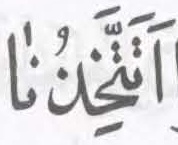 اَتَتَّخِذُنَا